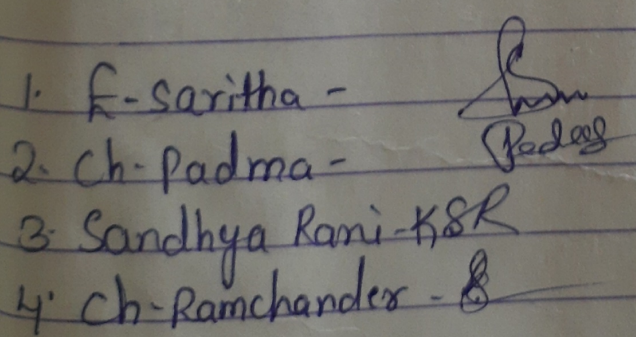 1. E-Saritha -
2. Ch-Padma - Padma
3. Sandhya Rani-KSR
4. Ch-Ramchander -